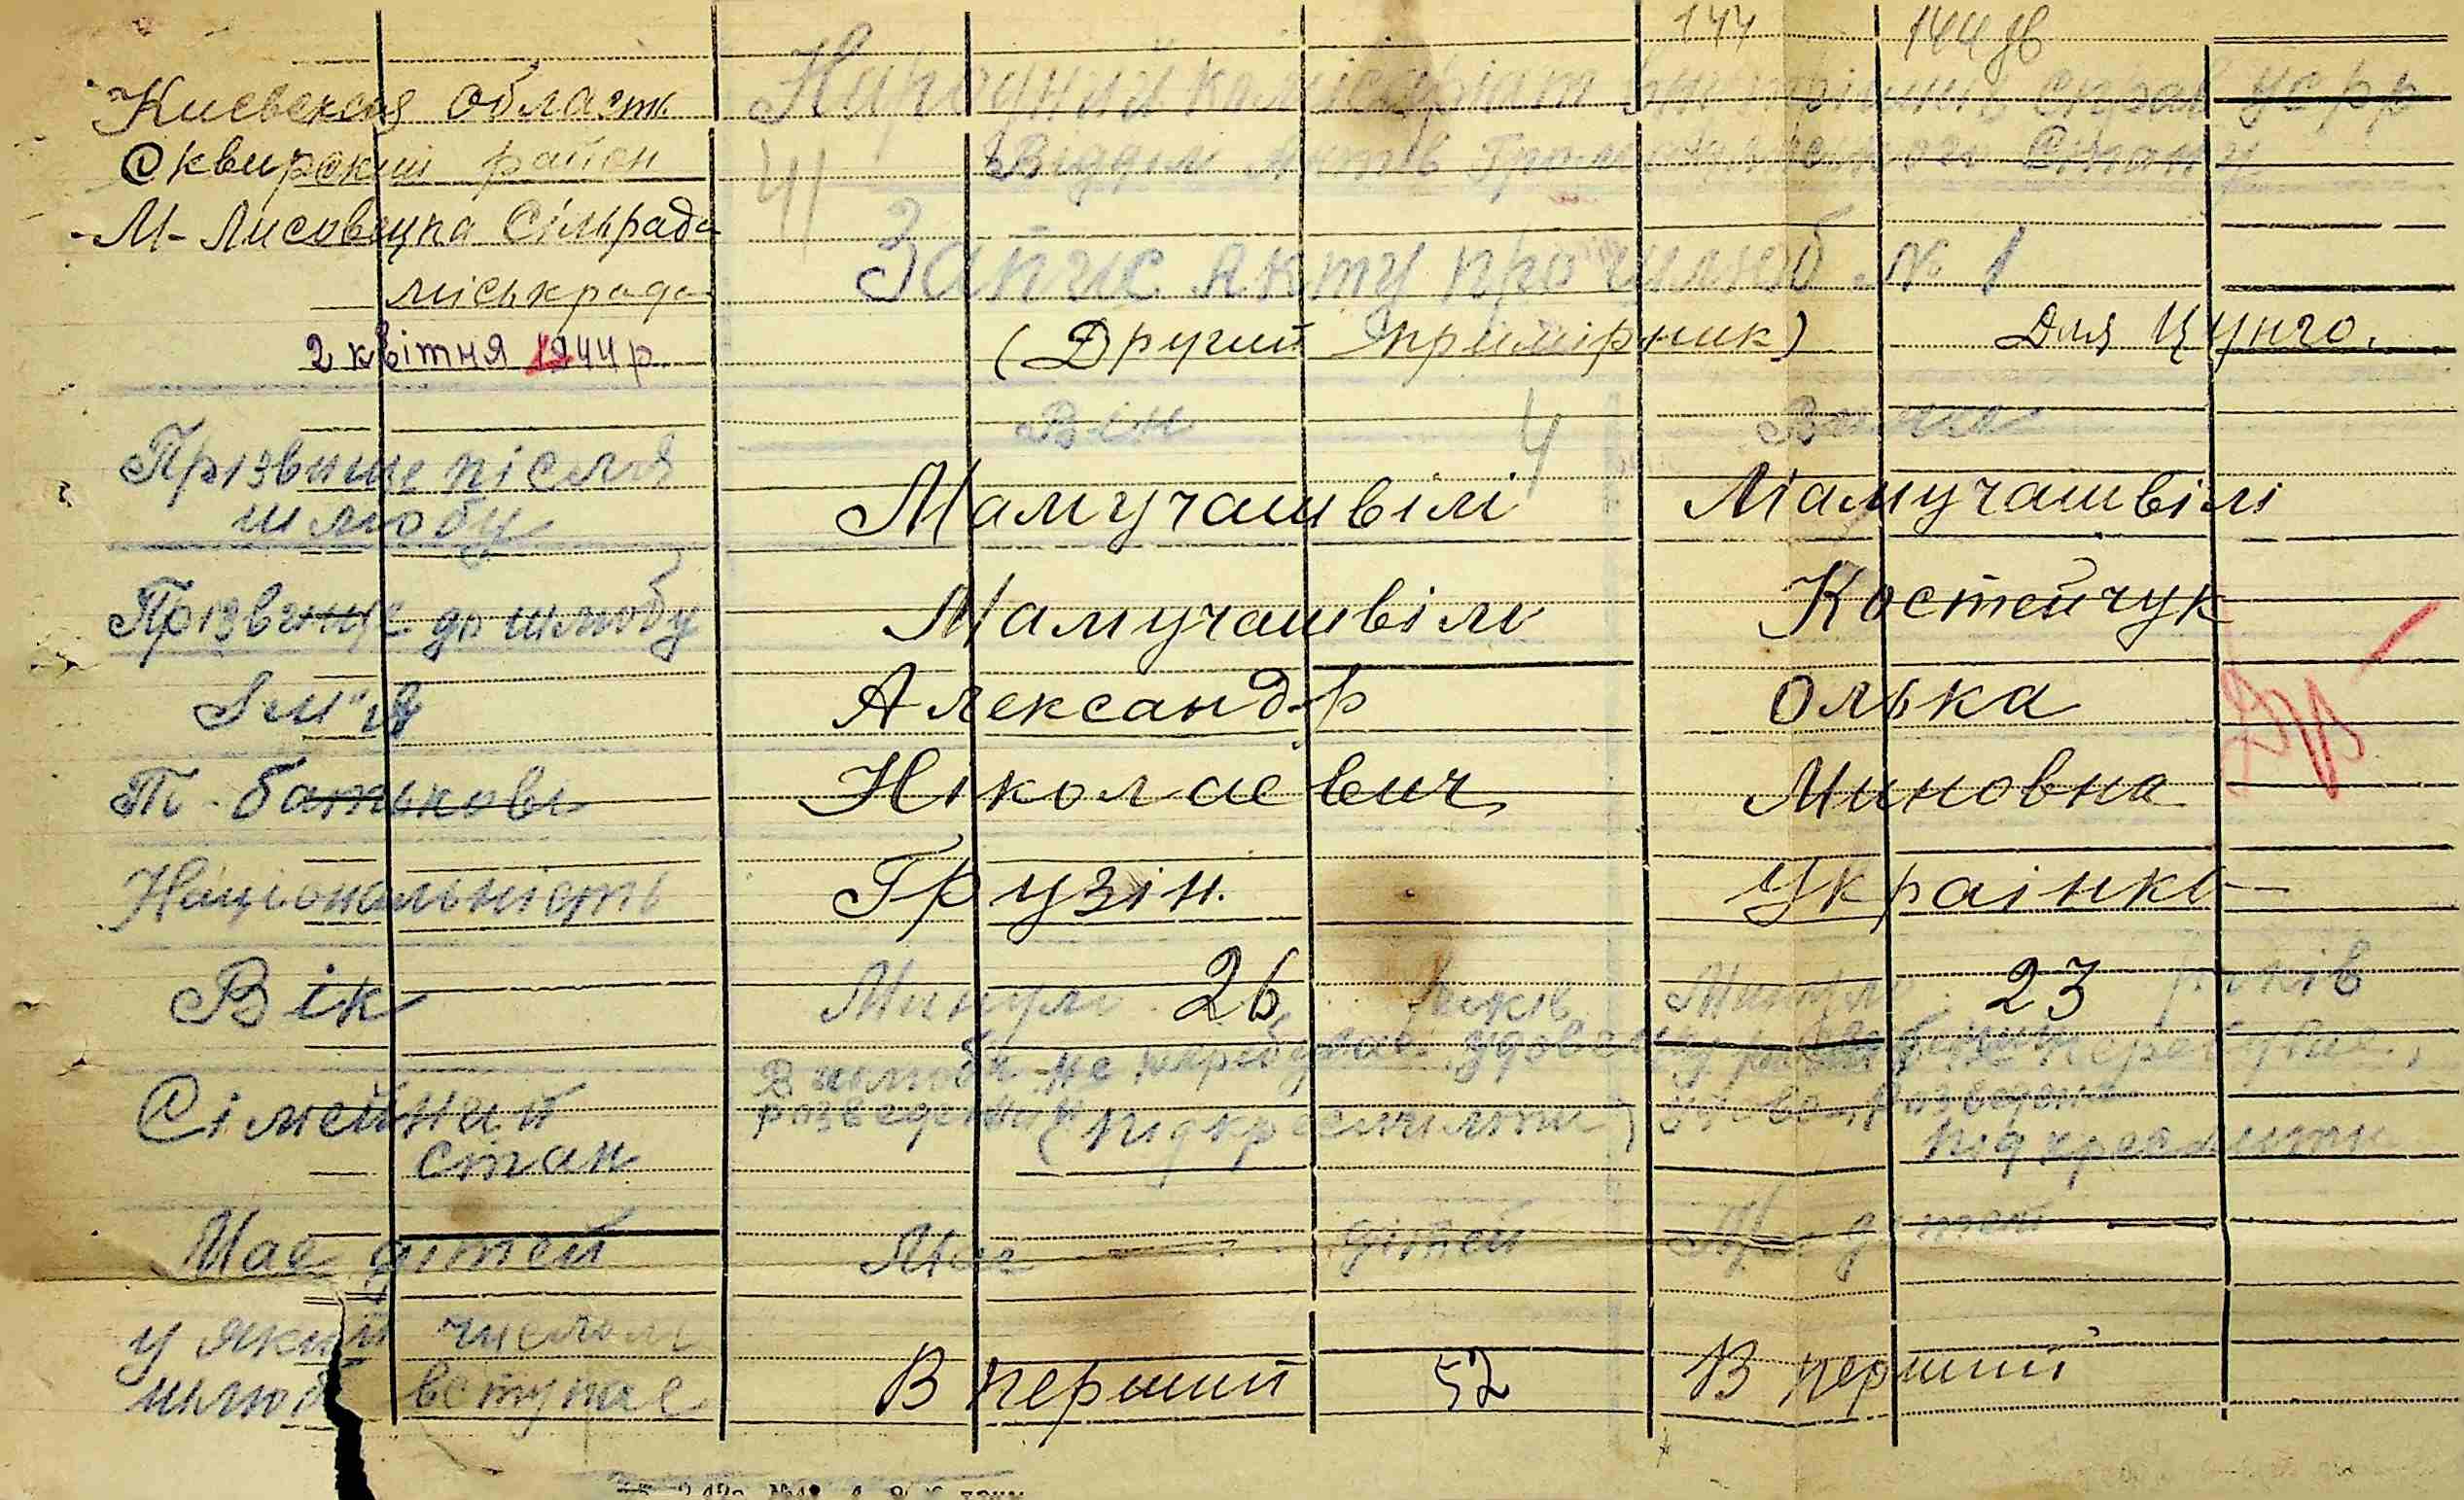 144 144 зв
Киевская область Народный комісаріат внутрішніх справ УСРР
Сквирский район Відділ Актів Громадянського Стану
М-Лисовецка Сільрада
Запис Акту про шлюб № 1
міськрада
2 квітня 1944 р. (Другий примірник) Для ЦУНГО.
Він Вона
Прізвище після
шлюбу Мамучашвілі Мамучашвілі
Прізвище до шлюбу Мамучашвілі Костейчук
Ім"я Александр Олька
По батькові Ніколаевич Миновна
Національність Грузін. Українка
Вік Минуло 26 років Минуло 23 років
В шлюбі не перебував, удовець,
розведений (підкреслити) удова, розведена
Сімейний
стан підкреслити
Має дітей Має — дітей дітей —
у який числом
шлюб вступає В перший 52 В перший